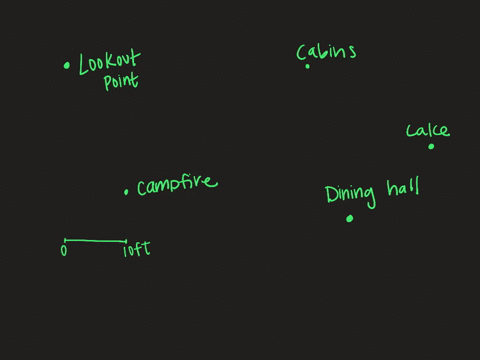 Lookout
Point
Cabins
Lake
Campfire
Dining hall
0
10ft